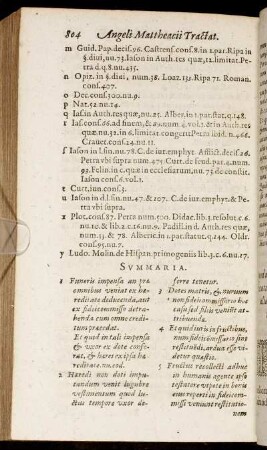 804 Angeli Matthæacii Tractat.
m Guid. Pap. decis. 96. Castrens. cons. 8. in 2. par. Ripa in
§. diui, nu. 73. Iason in Auth. res quæ, 12. limitat. Pe-
tra d. 138. nu. 435.
n Opiz. in §. diui, num. 38. Loaz. 131. Ripa 71. Roman.
cons. 407.
o Dec. cons. 300. nu. 9.
p Nat. 52. nu. 14.
q Ias. in Auth. res quæ, nu. 25. Alber. in 1. par. stat. q. 148.
r Ias. cons. 66. ad
nu. 4. vol. 1. & in Auth. res
quæ. nu. 32. in 6. limitat.
Petra ibid. n. 468.
Crauet. cons. 14. nu. 11.
s Iason in l. fin. nu. 78. C. de iur. emphyt. Afflict. decis. 26
Petra vbi supra num. 475. Curt. de feud. par. 4. num.
92. Felin. in c. quæ in ecclesiarum, nu. 73. de constit.
Iason cons. 6. vol. 1.
t Curt. iun. cons. 3.
u Iason in d. l. fin. nu. 47. & 107. C. de iur. emphyt. & Pe-
tra vbi supra.
x Plot. cons. 87. Petra num. 500. Didac. lib. 3. resolut. c. 6.
nu. 10. & lib. 2. c. 16. nu. 9. Padill. in d. Auth. res quæ,
num. 13. & 78. Alberic. in 1. par. statut. q. 146. Oldr.
cons. 95. nu. 7.
y Ludo. Molin. de Hispan. primogeniis lib. 3. c. 6. nu. 17.
SVMMARIA.
1 Funeris impensa an præ
omnibus veniat ex hæ-
reditate deducenda, aut
ex fideicommisso detra-
henda cum omne credi-
tum præcedat.
Et quod in tali impensa
& vxor ex dote confe-
rat, & hæres ex ipsa hæ-
reditate. nu. eod.
2 Hæredi non doti impu-
tandum venit lugubre
vestimentum quod lu-
ctus tempore vxor de-
ferre tenetur.
3 Dotes matris, & auiarum
non fideicommissario hæ-
casu sed filiis veniunt at-
tribuenda.
4 Et quid iuris in fructibus,
num fideicommissario sint
restituendi, ardua esse vi-
detur quæstio.
5 Fructus recollecti adhuc
in humanis agente ipso
testatore vt pote in boris
eius reperti an in fideicom-
misso veniant restitutio-
nem